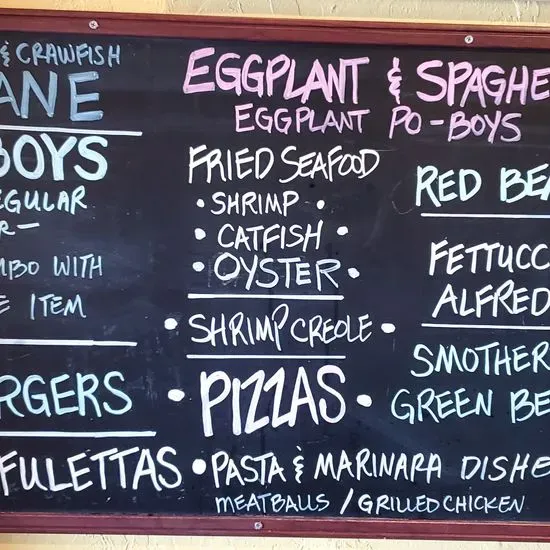 & CRAWFISH
ANE
BOYS
EGULAR
R-
MBO WITH
E ITEM
RGERS
FULETTAS
EGGPLANT & SPAGHE
EGGPLANT PO-BOYS
FRIED SEAFOOD
• SHRIMP •
• CATFISH •
• OYSTER •
• SHRIMP CREOLE •
• PIZZAS •
• PASTA & MARINARA DISHE
MEATBALLS / GRILLED CHICKEN
RED BEA
FETTUCC
ALFRED
SMOTHER
GREEN BE